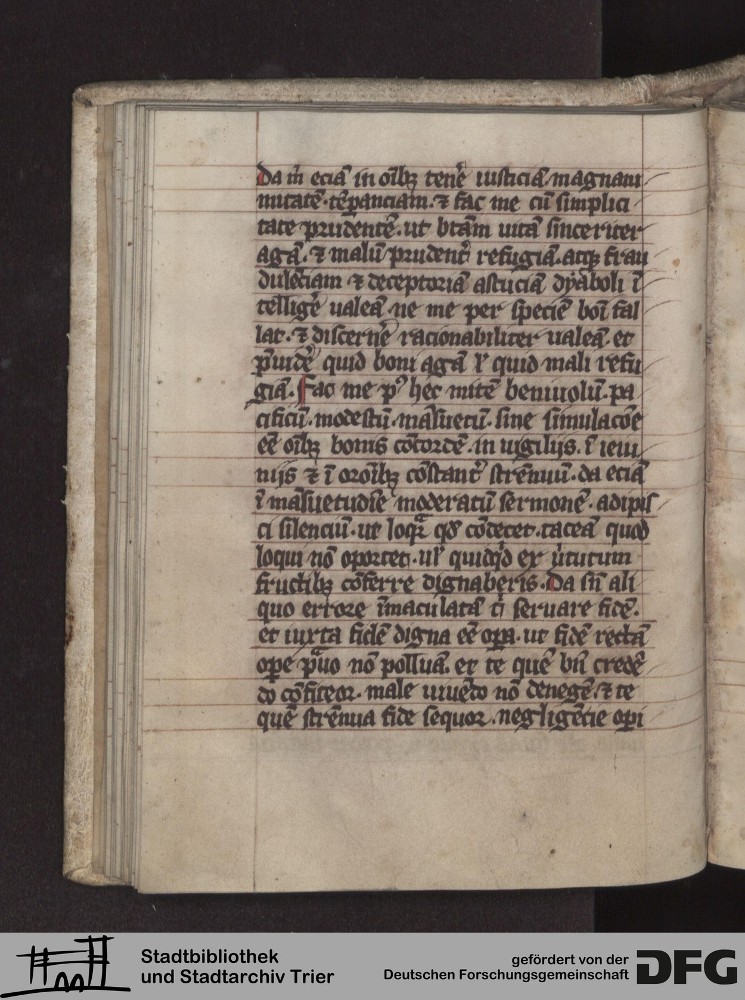 Da m̄ eciā in oīb᷒ tenē iusticiā magnani
mitatē · tēꝑanciam · ⁊ fac me cū simplici
tate prudentē · ut btām uitā sinceriter
agā · ⁊ malū prudent᷑ refugiā · atq᷒ frau
dulēciam ⁊ deceptoriā astuciā dyaboli ī
tellige᷑ ualeā · ne me per speciē boī fal
lat · ⁊ discerne᷑ racionabiliter ualeā · et
p̄uide᷑ quid boni agā ł quid mali refu
giā · Fac me pꝰ hec mitē beniuolū · pa
cificū · modestū · māsuetū · sine simulacōe
eē oīb᷒ bonis cōcordē · in uigilijs · ī ieiu
nijs ⁊ ī orōīb᷒ cōstant᷑ strēnuū · da eciā
ī māsuetudīe moderatū sermonē · adipis
ci silenciū · ut loqᷓr qd̄ cōdecet · taceā quod
loqui nō oportet · ul̄ quidq̄d ex ūtutum
fructib᷒ cōferre dignaberis · Da sn̄ ali
quo errore īmaculatā t᷑ seruare fidē ·
et iuxta fidē digna eē oꝑa · ut fidē rectā
oꝑe pᷓuo nō polluā · et te quē bn̄ credē
do cōfiteor · male uiuēdo nō denegē · ⁊ te
quē strēnua fide sequor · negligētie oꝑi
Stadtbibliothek
und Stadtarchiv Trier
gefördert von der
Deutschen Forschungsgemeinschaft
DFG